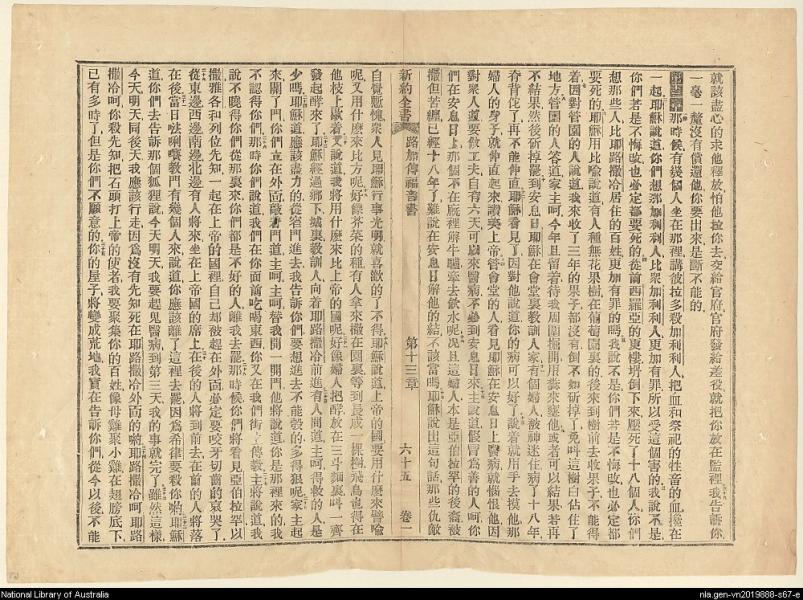 就該盡心的求他釋放怕他拉你去交給官府官府發給差役就把你放在監裡我告訴你
一毫一釐沒有償還他你要出來是斷不能的
那時候有幾個人坐在那裡講彼拉多殺加利利人把血和祭祀的牲畜的血攙在
一起耶穌說道你們想那加利利人比衆加利利人更加有罪所以受這個害的我說不是
你們若是不悔改也必定都要死的從前西羅亞的更樓坍倒下來壓死了十八個人你們
想那些人比耶路撒冷居住的百姓更加有罪的嗎我說不是你們若是不悔改也必定都
要死的耶穌用比喻說道有人種無花果樹在葡萄園裏的後來到樹前去收果子不能得
着因對管園的人說道我來收了三年的果子都沒有倒不如斫掉了免叫這樹白佔住了
地方管園的人答道家主呵今年且留着待我周圍掘開用糞來壅他或者可以結果若再
不結果然後斫掉罷到安息日耶穌在會堂裏教訓人家有個婦人被神迷住病了十八年
脊背佗了再不能伸直耶穌看見了因對他說道你的病可以好了說着就用手去摸他那
婦人的身子就伸直起來讚美上帝管會堂的人看見耶穌在安息日上醫病就惱恨他因
對衆人道要做工夫自有六天可以來醫病不必到安息日來主說道假冒爲善的人呵你
們在安息日上那個不在廐裡解牛驢牽去飲水呢況且這婦人本是亞伯拉罕的後裔被
撒但苦纏已經十八年了難說在安息日解他的結不該當嗎耶穌說出這句話那些仇敵
新約全書 路加傳福音書 第十三章 六十五 卷一
自覺慙愧衆人見耶穌行事光明就喜歡的了不得耶穌說道上帝的國要用什麼來譬喻
呢又用什麼來比方呢好像芥菜的種有人拿來撒在園裏等到長成一棵樹飛鳥也得在
他枝上歇着又說道我將用什麼來比上帝的國呢好像婦人把酵放在三斗麵裏叫一齊
發起酵來了耶穌經過鄉下城裏教訓人向着耶路撒冷前進有人問道主呵得救的人是
少嗎耶穌道應該盡力的從窄門進去我告訴你們要想進去不能彀的多得狠呢家主起
來關了門你們立在外面敲着門道主呵主呵替我開一開門他將說道你是那裡來的我
不認得你們那時你們說道我們在你面前吃喝東西你又在我們街上傳教主將說道我
說不曉得你們從那裏來你們都是不好的人離我去罷那時候你們將看見亞伯拉罕以
撒雅各和列位先知一起在上帝的國裡自己却被趕在外面必定要咬牙切齒的哀哭了
從東邊西邊南邊北邊有人將來坐在上帝國的席上在後的人將到前去在前的人將落
在後當日𠵽唎嚽教門有幾個人來說道你應該離了這裡去罷因爲希律要殺你喲耶穌
道你們去告訴那個狐狸說今天明天我要起鬼醫病到第三天我的事就完了雖然這樣
今天明天同後天我應該行走因爲沒有先知死在耶路撒冷外面的喲耶路撒冷呵耶路
撒冷呵你殺先知把石頭打上帝的使者我要聚集你的百姓像母雞聚小雞在翅膀底下
已有多時了但是你們不願意的你的屋子將變成荒地我實在告訴你們從今以後不能
National Library of Australia
nla.gen-vn2019888-s67-e